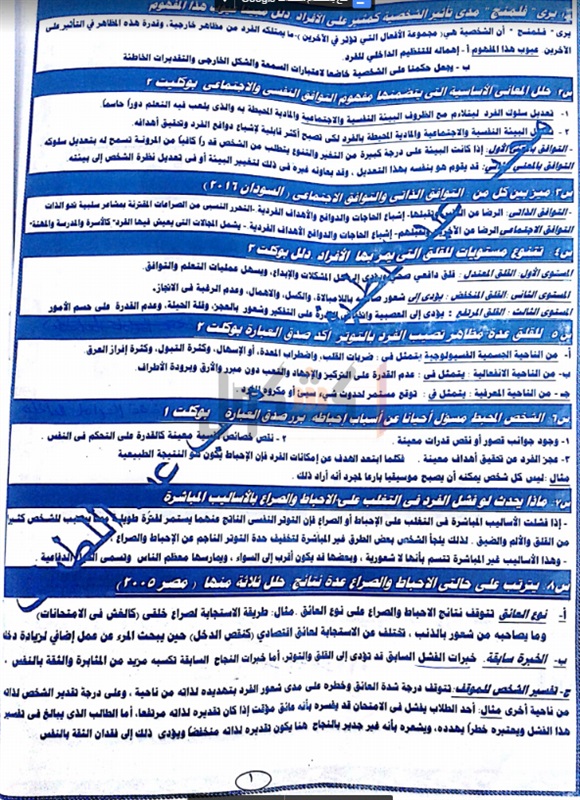 يرى " فلمنج " مدى تأثير الشخصية كمثير على الأفراد دلل مبينا عيوب هذا المفهوم
يرى "فلمنج " أن الشخصية هي( مجموعة الأفعال التي تؤثر في الآخرين )-ما يمتلكه الفرد من مظاهر خارجية، وقدرة هذه المظاهر في التأثير على
الآخرين عيوب هذا المفهوم أ - إهماله للتنظيم الداخلي للفرد.
ب - يجعل حكمنا على الشخصية خاضعا لاعتبارات السمعة والشكل الخارجي والتقديرات الخاطئة
س٢ حلل المعاني الأساسية التي يتضمنها مفهوم التوافق النفسي والاجتماعي بوكليت ٢
١- تعديل سلوك الفرد ليتلاءم مع الظروف البيئة النفسية والاجتماعية والمادية المحيطة به والذي يلعب فيه التعلم دورا حاسم)
٢- البيئة النفسية والاجتماعية والمادية المحيطة بالفرد لكي تصبح أكثر قابلية لإشباع دوافع الفرد وتحقيق أهدافه.
-التوافق الأول: إذا كانت البيئة على درجة كبيرة من التغير والتنوع يتطلب من الشخص قد راً كافيا من المرونة تسمح له بتعديل سلوكه.
-التوافق بالمعنى قد يقوم هو بنفسه بهذا التعديل، وقد يعاونه غيره في ذلك لتغيير البيئة أو في تعديل نظرة الشخص إلى بيئته.
س٣ ميز بين كل من التوافق الذاتي والتوافق الاجتماعي ( السودان ٢٠١٦ )
-التوافق الذاتي: الرضا عن وتقبلها، إشباع الحاجات والدوافع والأهداف الفردية -التحرر النسبي من الصراعات المقترنة بمشاعر سلبية نحو الذات
التوافق الاجتماعي الرضا عن الآخرين إشباع الحاجات والدوافع والأهداف الفردية - يشمل المجالات التي يعيش فيها الفرد" كالأسرة والمدرسة والمهنة"
س٤ تتنوع مستويات للقلق التي يمر بها الأفراد دلل بوكلت ٣
المستوى الأول: القلق المعتدل : قلق دافعي صحي ويؤدى إلى حل المشكلات والإبداع، ويسهل عمليات التعلم والتوافق.
المستوى الثاني: القلق المنخفض: يؤدى إلى شعور باللامبالاة، والكسل، والاهمال، وعدم الرغبة في الانجاز.
المستوى الثالث: القلق المرتفع : يؤدى إلى العصبية على التفكير وشعور بالعجز، وقلة الحيلة، وعدم القدرة على حسم الأمور
س٥ للقلق عدة مظاهر تصيب الفرد بالتوتر أكد صدق العبارة بوكلت ٢
أ- من الناحية الجسمية الفسيولوجية يتمثل في : ضربات القلب، واضطراب المعدة، أو الإسهال، وكثرة التبول، وكثرة إفراز العرق.
ب- من الناحية الانفعالية : يتمثل في : عدم القدرة على التركيز والإجهاد والتعب دون مبرر والأرق وبرودة الأطراف.
جـ- من الناحية المعرفية : يتمثل في : توقع مستمر لحدوث شيء سيئ أو مكروه للفرد .
س٦ الشخص المحبط مسؤل أحيانا عن أسباب إحباطه برر صدق العبارة بوكلت ١
١- وجود جوانب قصور أو نقص قدرات معينة . ٢- نقص خصائص نفسية معينة كالقدرة على التحكم في النفس .
٣- عجز الفرد عن تحقيق أهداف معينة. فكلما ابتعد الهدف عن إمكانات الفرد فإن الإحباط يكون هو النتيجة الطبيعية
مثال: ليس كل شخص يمكنه أن يصبح موسيقيا بارعا لمجرد أنه أراد ذلك.
س٧ ماذا يحدث لو فشل الفرد في التغلب على الاحباط والصراع بالأساليب المباشرة
- إذا فشلت الأساليب المباشرة في التغلب على الإحباط أو الصراع فإن التوتر النفسي الناتج عنهما يستمر لفترة طويلة للشخص كثيرا
من القلق والألم والضيق . لذلك يلجأ الشخص بعض الطرق غير المباشرة لتخفيف حدة التوتر الناجم عن الإحباط والصراع .
- وهذا الأساليب غير المباشرة تتسم بأنها لا شعورية ، وبعضها قد يكون أقرب إلى السواء ، ويمارسها معظم الناس وتسمى الدفاعية .
س٨ يترتب على حالتي الاحباط والصراع عدة نتائج حلل ثلاثة منها ( مصر ٢٠٠٥ )
أ- نوع العائق تتوقف نتائج الاحباط والصراع على نوع العائق. مثال: طريقة الاستجابة لصراع خلقي (كالغش في الامتحانات)
وما يصاحبه من شعور بالذنب ، تختلف عن الاستجابة لعائق اقتصادي (كنقص الدخل) حين يبحث المرء عن عمل إضافي لزيادة دخله
ب- الخبرة سابقة. خبرات الفشل السابق قد تؤدى إلى القلق والتوتر، أما خبرات النجاح السابقة تكسبه مزيد من المثابرة والثقة بالنفس ،
ج- تفسير الشخص للموقف: تتوقف درجة شدة العائق وخطره على مدى شعور الفرد بتهديده لذاته من ناحية ، وعلى درجة تقدير الشخص لذاته
من ناحية أخرى مثال: أحد الطلاب يفشل في الامتحان قد يفسره بأنه عائق مؤقت إذا كان تقديره لذاته مرتفعا، أما الطالب الذي يبالغ في تفسير
هذا الفشل ويعتبره خطراً يهدده، ويشعره بأنه غير جدير بالنجاح هنا يكون تقديره لذاته منخفضا ويؤدى ذلك إلى فقدان الثقة بالنفس
١